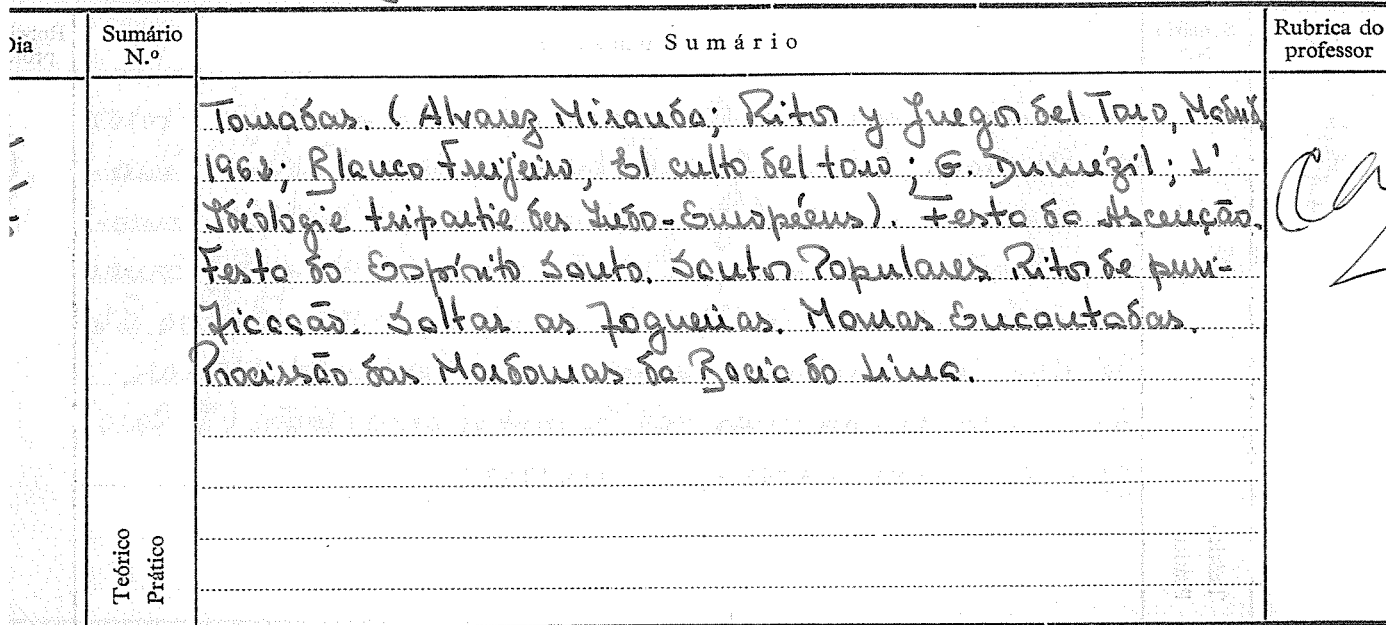 Dia Sumário N.º Sumário Rubrica do professor
Touradas. (Alvarez Miranda; Ritos y Juegos del Toro, Madrid,
1962; Blanco Freijeiro, El culto del toro; G. Dumézil; L'
Idéologie tripartie des Indo-Européens). Festa da Ascenção.
Festa do Espírito Santo. Santos Populares. Ritos de puri-
ficação. Saltar as fogueiras. Mouras Encantadas.
Procissão das Mordomas da Bacia do Lima.
Teórico
Prático